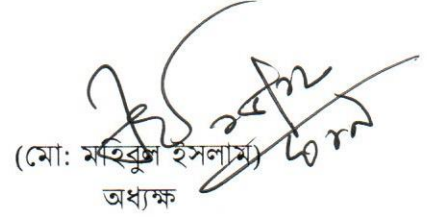 (মো: মহিবুল ইসলাম)
অধ্যক্ষ